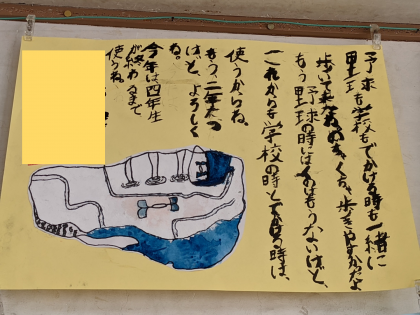 野球も学校もでかける時も一緒に
歩いてきたね。歩きやすかったよ
もう野球の時にはくのはもうないけど、
これからも学校の時とでかける時は、
使うからね。
もう、二年たつ
けど、よろしく
ね。
今年は四年生
が終わるまで
使うね、